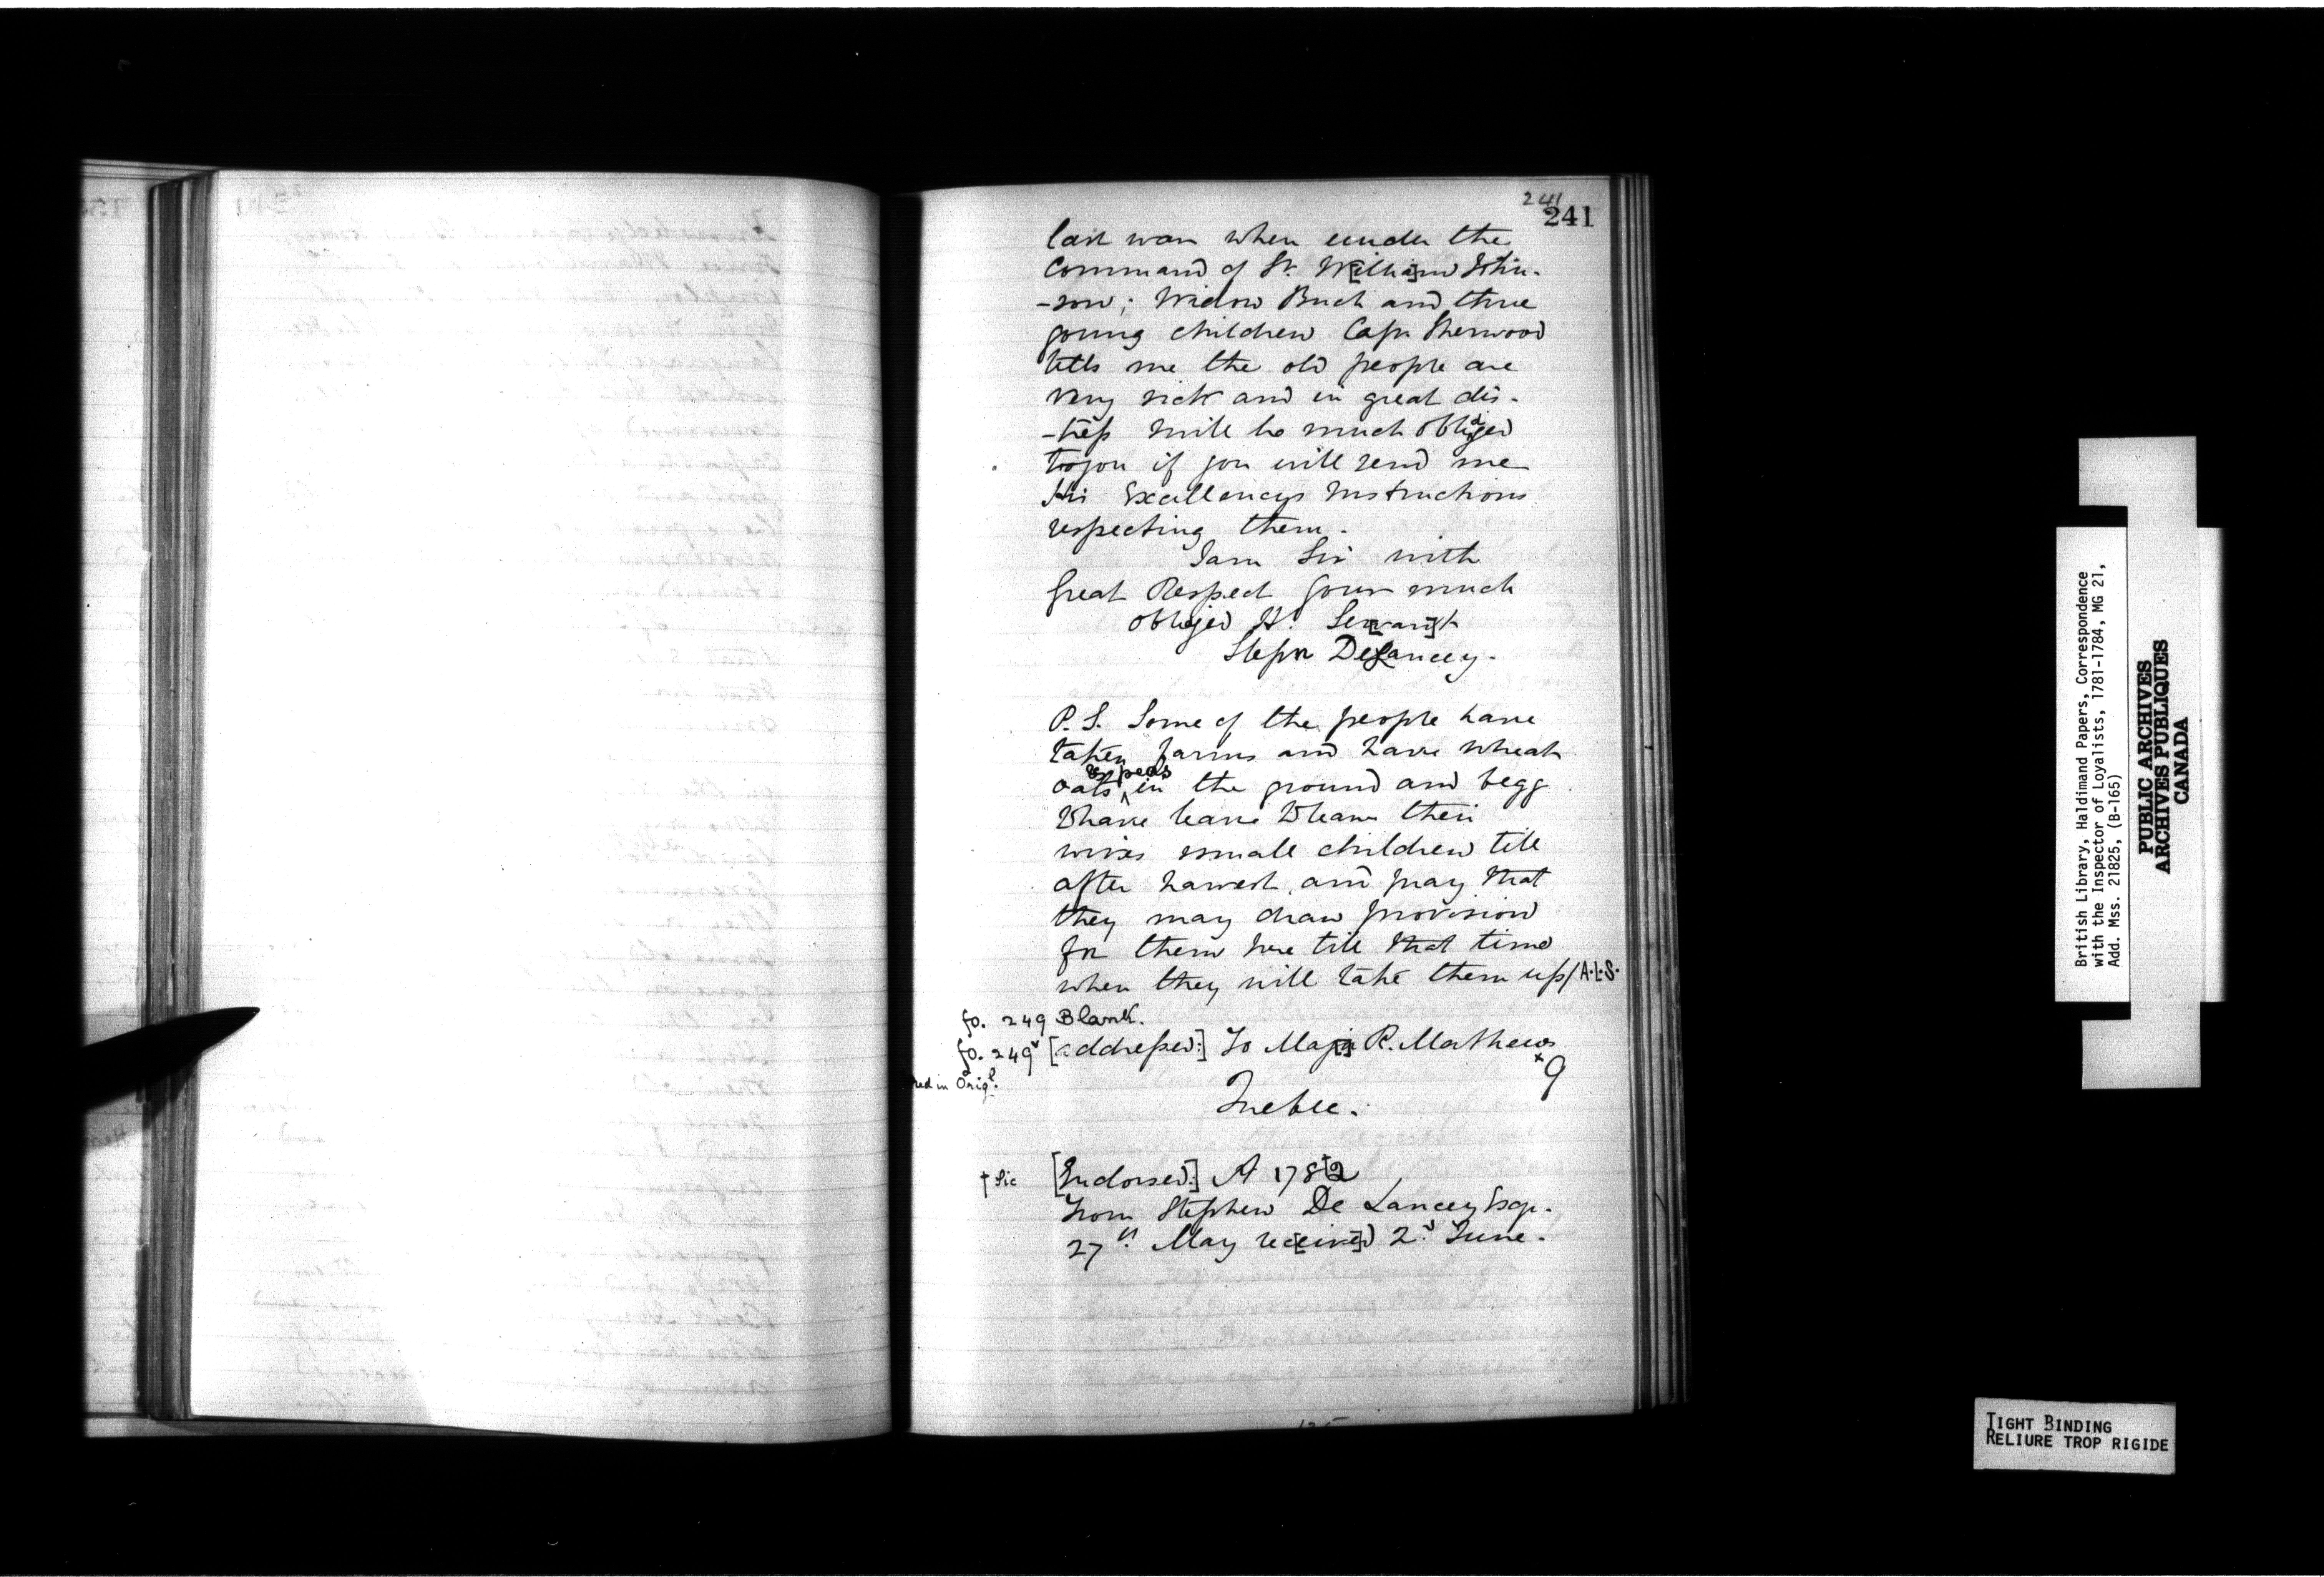 241
241
last war when under the
Command of Sr. W[illia]m John-
-son; Widow Buck and three
young children Capn Sherwood
tells me the old people are
very sick and in great dis-
-tress will be much obliged
to you if you will send me
His Excellencys Instructions
respecting them.
I am Sir with
Great Respect your much
obliged H. Se[rvan]t
Stepn DeLancey.
P.S. Some of the people have
taken farms and have wheat
& peas
oats ^ in the ground and begg
to have leave to leave their
wives small children till
after harvest, and pray that
they may draw provision
for them here till that time
when they will take them up/ A.L.S.
fo. 249 Blank.
fo. 249v [addressed:] To Maj[r] R. Mathews
+9
red in Origl.
Quebec.
† Sic [Endorsed:] A 178†2
From Stephen De Lancey Esqr.
27th May rec[eive]d 2d June.
British Library, Haldimand Papers, Correspondence
with the Inspector of Loyalists, 1781-1784, MG 21,
Add. Mss. 21825, (B-165)
PUBLIC ARCHIVES
ARCHIVES PUBLIQUES
CANADA
TIGHT BINDING
RELIURE TROP RIGIDE